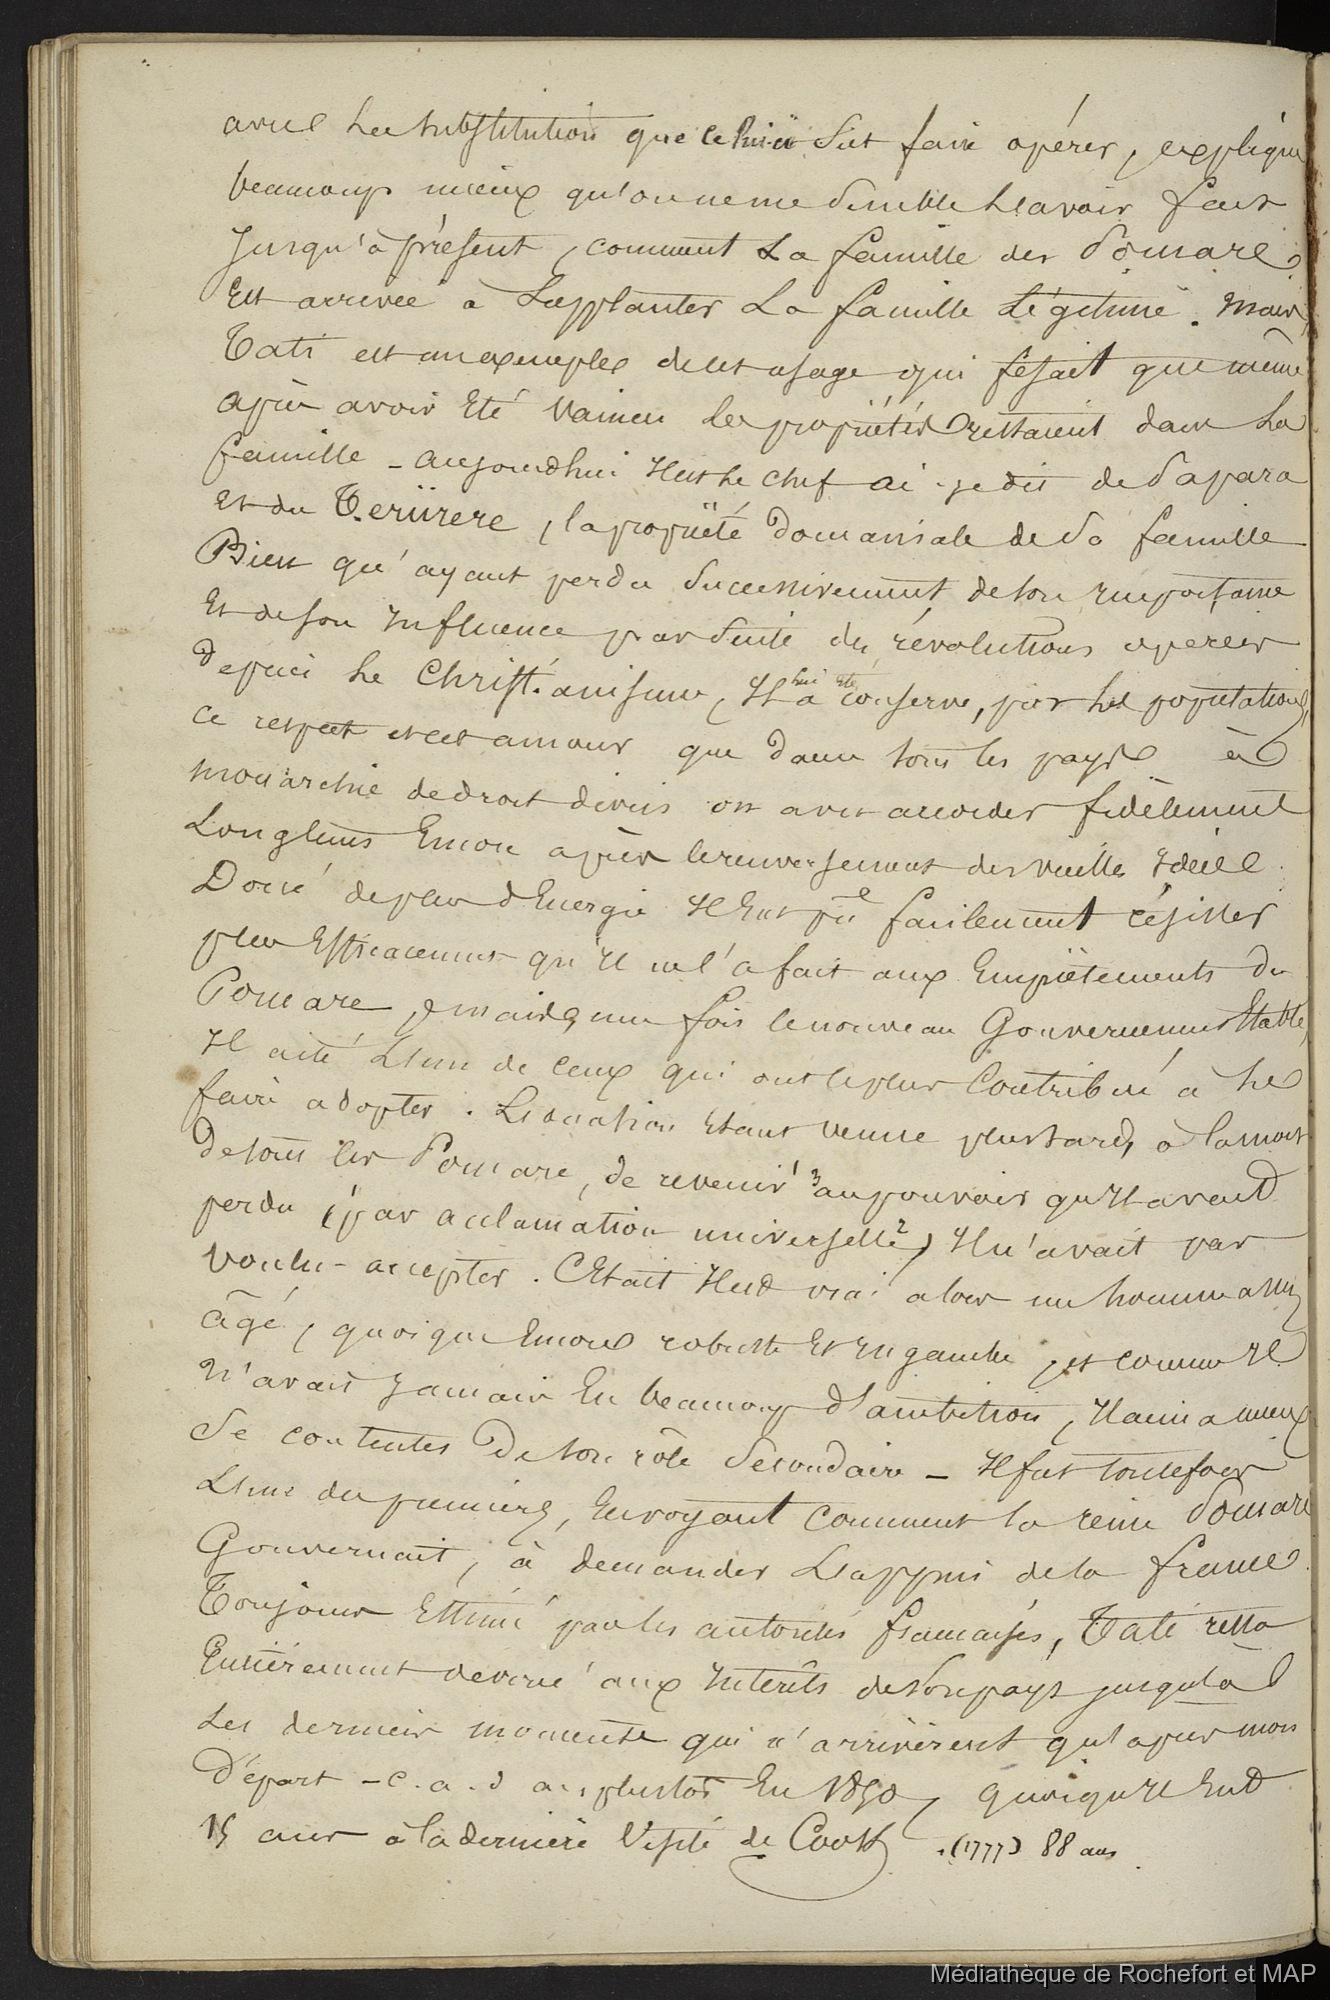 avec la substitution que celui-ci sut faire opérer, explique
beaucoup mieux qu'on ne me semble l'avoir fait
jusqu'à présent, comment la famille des Pomare
est arrivée à supplanter la famille légitime. Mais
Tati est un exemple de cet usage qui fesait que même
après avoir été vaincu les propriétés restaient dans la
famille - aujourd'hui il est le chef ai-je dit de Papara
et du Teriirere, la propriété domaniale de sa famille
Bien qu'ayant perdu successivement de son importance
et de son influence par suite des révolutions opérées
depuis le Christianisme, il lui a été conservé, par les populations,
ce respect et cet amour que dans tous les pays à
monarchie de droit divin on a vu accorder fidèlement
longtems encore après le renversement des vieilles idées.
Doué de plus d'énergie il eut pu facilement résister
plus efficacement qu'il ne l'a fait aux empiètements des
Pomare, mais une fois le nouveau Gouvernement établi,
il a été l'un de ceux qui ont le plus contribué à le
faire adopter. L'occasion étant venue plus tard, à la mort
de tous les Pomare, de revenir 3 au pouvoir qu'il avait
perdu (par acclamation universelle 2) il n'avait pas
voulu accepter. C'était il est vrai alors un homme assez
âgé, quoique encore robuste et ingambe, et comme il
n'avait jamais eu beaucoup d'ambition, il aima mieux
se contenter de son rôle secondaire - il fut toutefois
l'un des premiers, en voyant comment la reine Pomare
Gouvernait, à demander l'appui de la France.
Toujours estimé par les autorités françaises, Tati resta
entièrement dévoué aux intérêts de son pays jusqu'à
ses derniers moments qui n'arrivèrent qu'après mon
départ - c.a.d au plus tôt en 1850, quoiqu'il eut
15 ans à la dernière visite de Cook. (1777) 88 ans
Médiathèque de Rochefort et MAP